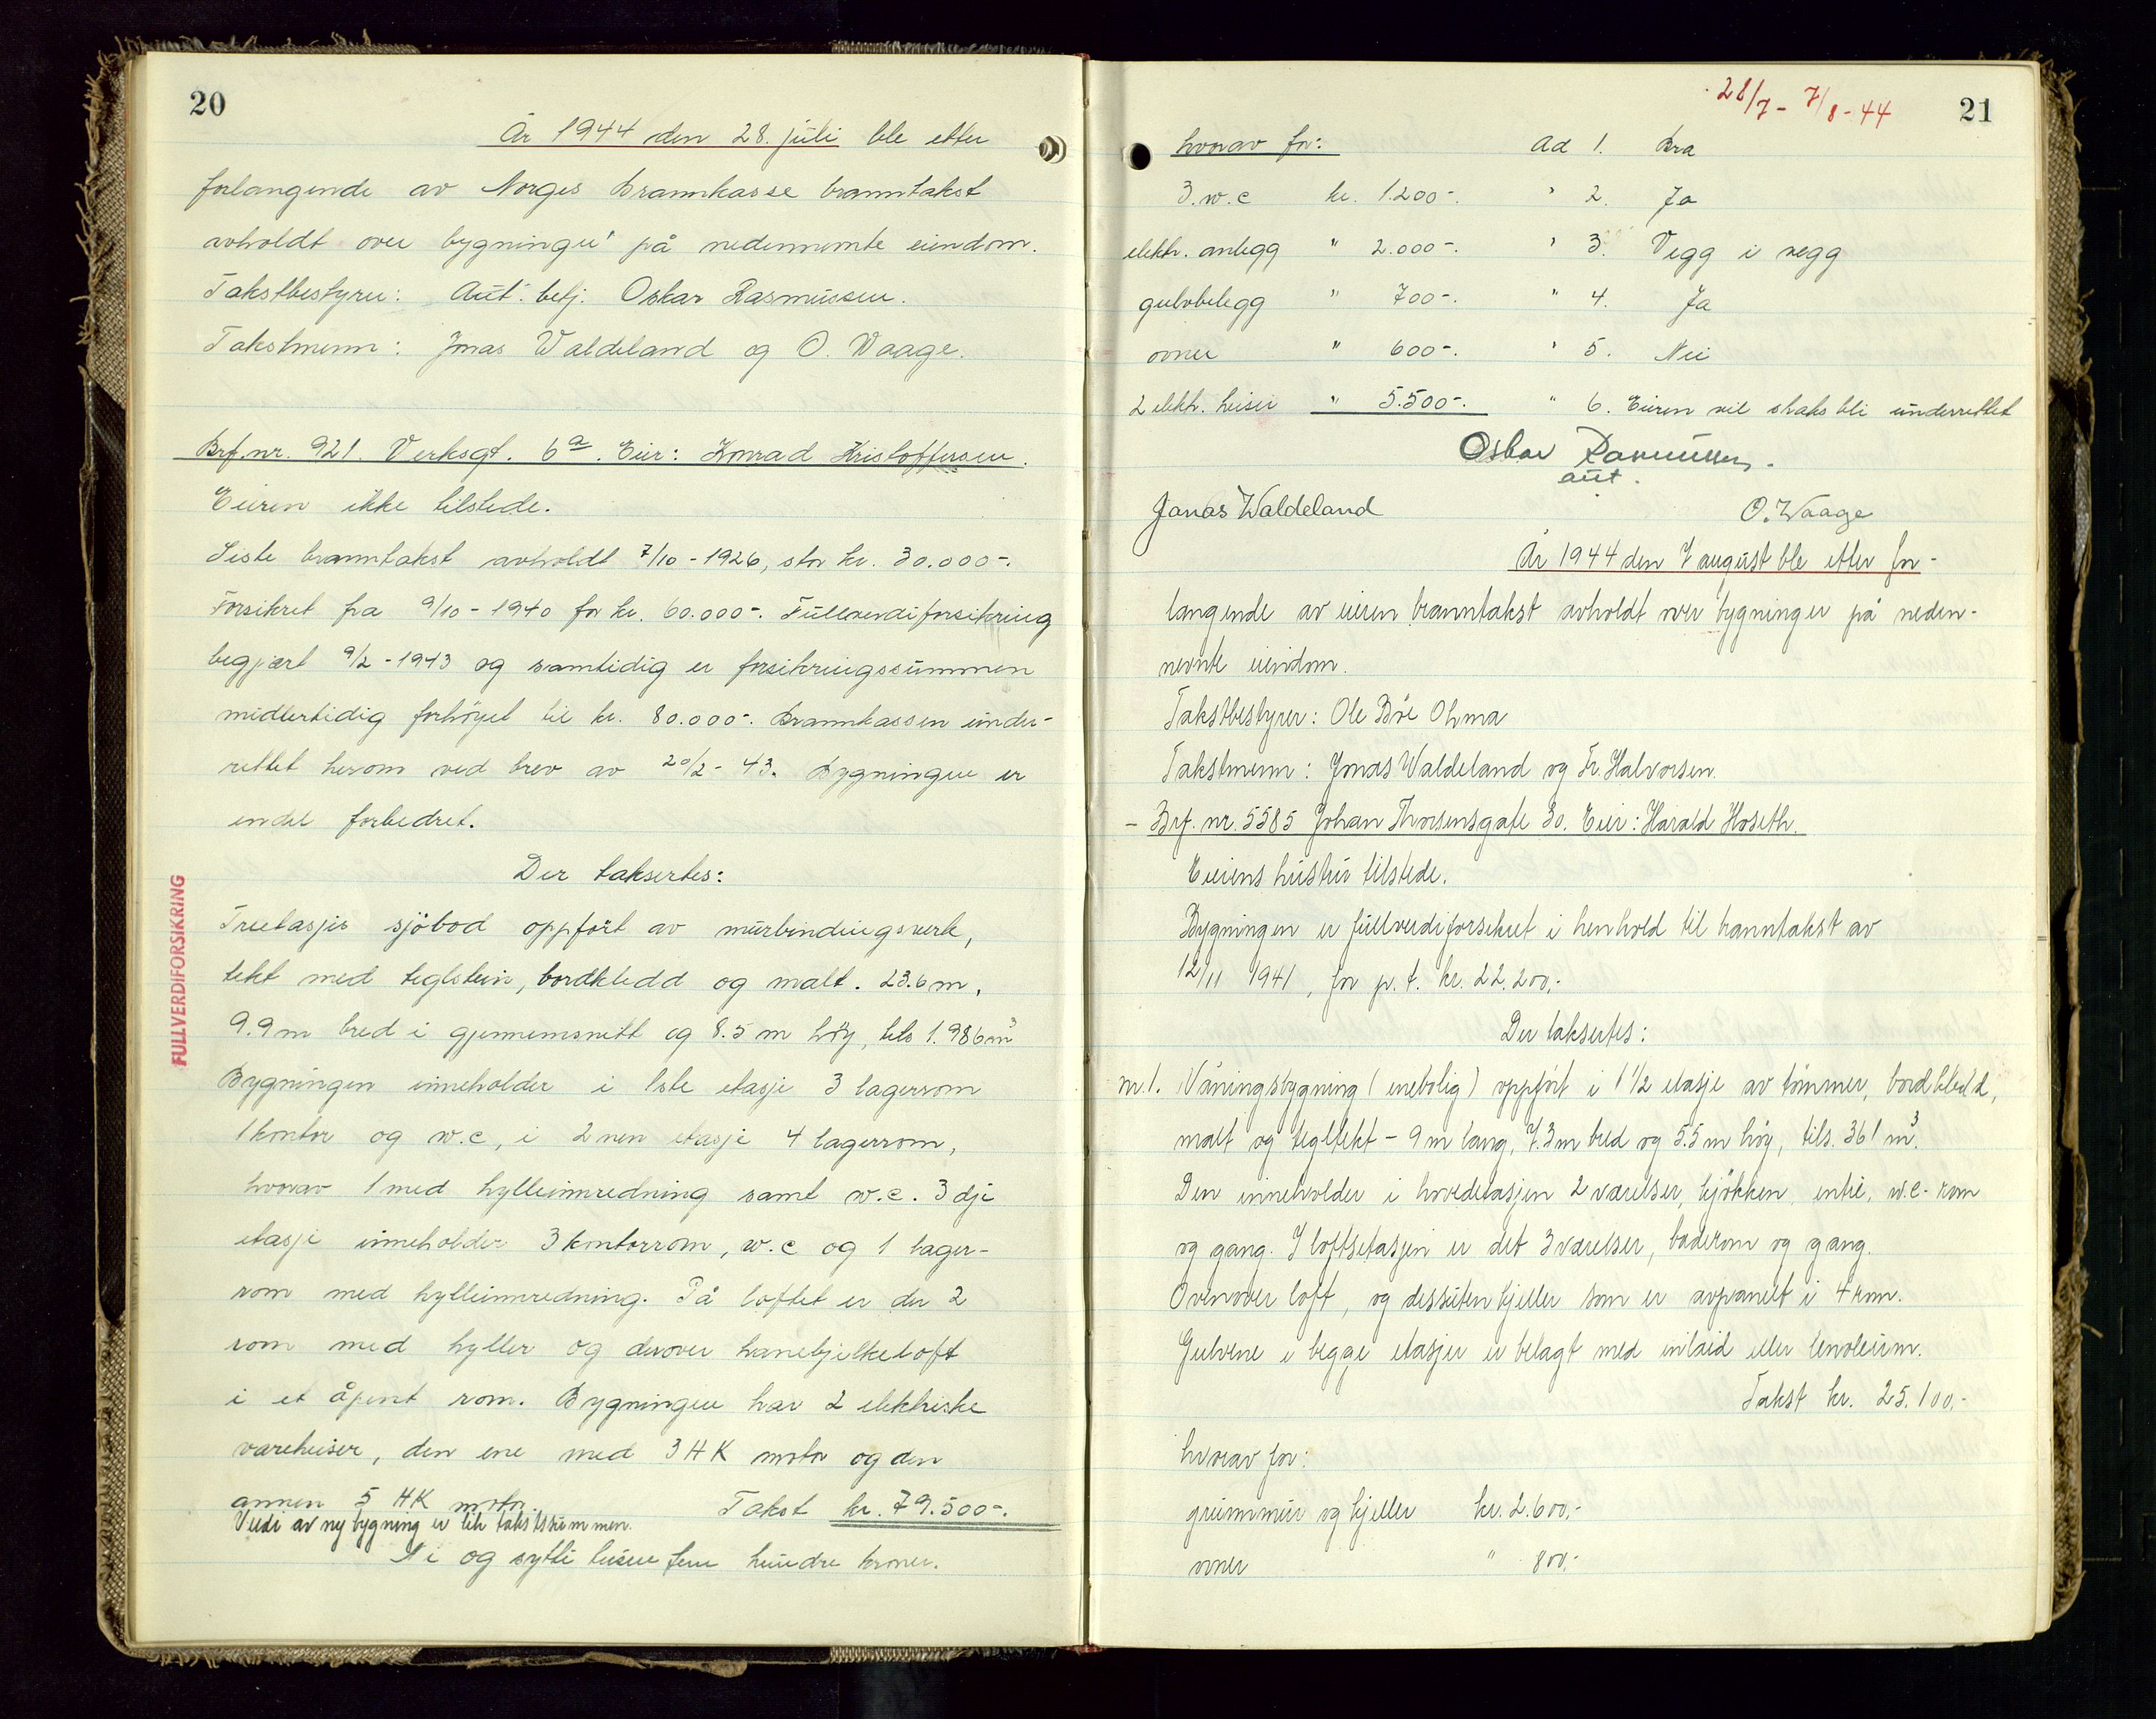 20
År 1944 den 28. juli ble etter
forlangende av Norges Brannkasse branntakst
avholdt over bygninger på nedennemte eiendom.
Takstbestyrer: Aut. betj. Oskar Rasmussen.
Takstmenn: Jonas Waldeland og O. Waage.
Brf.nr. 921. Verksgt. 6a. Eier: Konrad Kristoffersen.
Eieren ikke tilstede.
Siste branntakst avholdt 7/10-1926, stor kr. 30.000-.
Forsikret fra 9/10-1940 for kr. 60.000-. Fullverdiforsikring
begjært 9/2-1943 og samtidig er forsikringssummen
midlertidig forhöyet til kr. 80.000-. Brannkassen under-
rettet herom ved brev av 20/2-43. Bygningen er
endel forbedret.
Der taksertes:
FULLVERDIFORSIKRING
Treetasjes sjöbod oppfört av murbindingsverk,
tekt med teglstein, bordkledd og malt. 23.6 m,
9.9 m bred i gjennemsnitt og 8.5 m höy, tils 1.986 m³
Bygningen inneholder i 1ste etasje 3 lagerrom
1 kontor og w.c, i 2nen etasje 4 lagerrom,
hvorav 1 med hylleinnredning samt w.c. 3dje
etasje inneholder 3 kontorrom, w.c og 1 lager-
rom med hylleinnredning. På loftet er der 2
rom med hyller og derover hanebjelkeloft
i et åpent rom. Bygningen har 2 elektriske
vareheiser, den ene med 3 HK motor og den
annen 5 HK motor. Takst kr. 79.500-.
Verdi av ny bygning er lik takstsummen.
Ni og sytti tusen fem hundre kroner.
28/7 - 7/8-44
21
hvorav for: Ad 1. Bra
3. w.c kr. 1.200-. " 2. Ja
elektr. anlegg " 2.000-. " 3. Vegg i vegg
gulvbelegg " 700-. " 4. Ja
ovner " 600-. " 5. Nei
2 elektr. heiser " 5.500-. " 6. Eieren vil straks bli underrettet
Oskar Rasmussen.
aut.
Jonas Waldeland O. Waage
År 1944 den 7 august ble etter for-
langende av eieren branntakst avholdt over bygninger på neden-
nevnte eiendom.
Takstbestyrer: Ole Böe Ohma
Takstmenn: Jonas Waldeland og Fr. Halvorsen.
- Brf. nr. 5585 Johan Thorsensgate 30. Eier: Harald Hoseth.
Eierens hustru tilstede.
Bygningen er fullverdiforsikret i henhold til branntakst av
12/11 1941, for p. t. kr. 22.200,-
Der taksertes:
nr. 1. Våningsbygning (enebolig) oppfört i 1 1/2 etasje av tömmer, bordkledd,
malt og tegltekt - 9 m lang, 7.3 m bred og 5.5 m höy, tils. 361 m³.
Den inneholder i hovedetasjen 2 værelser, kjökken, entré, w.c.-rom
og gang. I loftsetasjen er det 3 værelser, baderom og gang.
Ovenover loft, og dessuten kjeller som er avpanelt i 4 rom.
Gulvene i begge etasjer er belagt med inlaid eller lenoleum.
Takst kr. 25.100,-
hvorav for:
grunnmur og kjeller kr. 2.600,-
ovner " 800,-